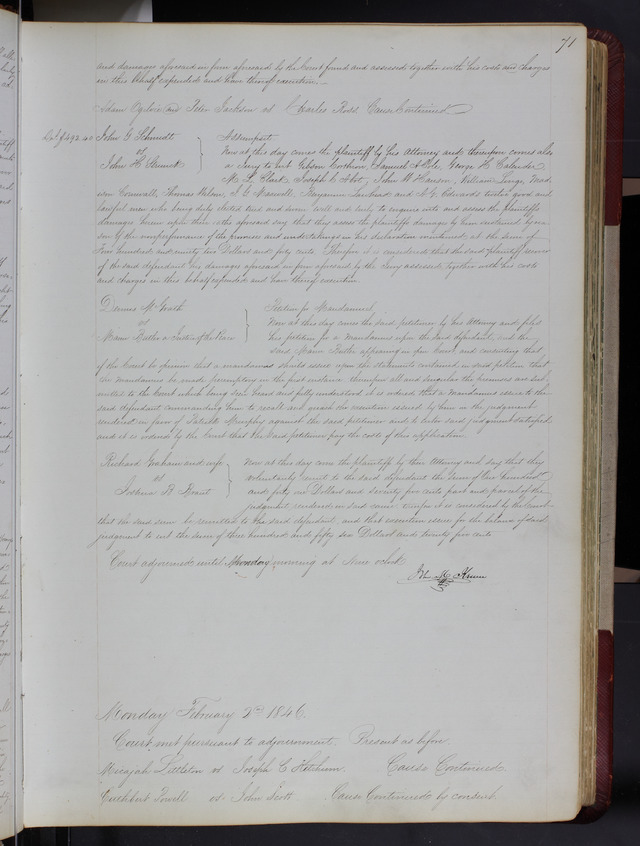 71
and damages aforesaid in form aforesaid by the Court found and assessed together with his costs and charges
in this behalf expended and have thereof execution.
Adam Ogilvie and Peter Jackson vs Charles Cause Continued
John G Schmidt
vs
John H
Assumpsit
Now at this day comes the plaintiff by his Attorney and therefore comes also
a Jury to wit Gibson Corthron, Samuel A George H Calender
W. P. Clark, Joseph John W William
Cornwall, Thomas Benjamin and twelve good and
lawful men who being duly elected tried and sworn well and truly to enquire into and assess the plaintiffs
damages herein upon their oaths aforesaid say that they assess the plaintiffs damages by him sustained by rea-
son of the nonperformance of the promises and undertakings in his declaration mentioned, at the sum of
Four hundred and ninety two Dollars and forty cents. Therefore it is considered that the said plaintiff recover
of the said defendant his damages aforesaid in form aforesaid by the Jury assessed together with his costs
and charges in this behalf expended and have thereof execution
Dennis McGrath
vs
Mann Butler a Justice of the Peace
Petition for Mandamus
Now at this day comes the said petitioner by his Attorney and files
his petition for a Mandamus upon the said defendant, and the
said Mann Butler appearing in open Court and consenting that
if the Court be of opinion that a mandamus should issue upon the statements contained in said petition that
the Mandamus be made peremptory in the first instance thereupon all and singular the premises are sub-
mitted to the Court which being seen heard and fully understood it is ordered that a Mandamus issue to the
said defendant commanding him to recall and quash the execution issued by him on the judgment
rendered in favor of Murphy against the said petitioner and to enter said judgment satisfied,
and it is ordered by the Court that the said petitioner pay the costs of this application.
Richard Graham and wife
vs
Joshua B Grant
Now at this day come the plaintiffs by their Attorney and say that they
voluntarily remit to the said defendant the sum of One hundred
and forty six Dollars and seventy five cents part and parcel of the
judgment rendered in said cause therefore it is considered by the Court
that the said sum be remitted to the said defendant, and that execution issue for the balance of said
judgment to wit the sum of three hundred and fifty six Dollars and twenty five cents
Court adjourned until Monday morning at Nine oclock
Jn. M. Krum
Monday February 2nd 1846.
Court met pursuant to adjournment. Present as before.
Micajah Littleton vs Joseph C Ketchum. Cause Continued
Cuthbert Powell vs John Scott Cause Continued by consent.